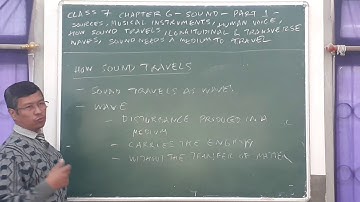 CLASS 7 CHAPTER 6 - SOUND - PART 1 -
SOURCES, MUSICAL INSTRUMENTS, HUMAN VOICE,
HOW SOUND TRAVELS, LONGITUDINAL & TRANSVERSE
WAVES, SOUND NEEDS A MEDIUM TO TRAVEL
HOW SOUND TRAVELS
- SOUND TRAVELS AS WAVES
- WAVE
- DISTURBANCE PRODUCED IN A
MEDIUM
- CARRIES THE ENERGY
- WITHOUT THE TRANSFER OF MATTER